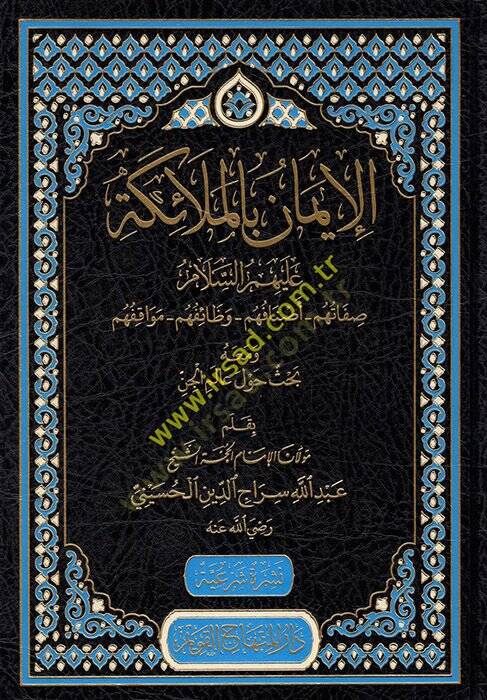 الإيمان بالملائكة
عليهم السلام
صفاتهم - أصنافهم - وظائفهم - مواقفهم
ومعه
بحث حول عالم الجن
بقلم
مولانا الإمام الحجة الشيخ
عبد الله سراج الدين الحسيني
رضي الله عنه
نشرة شرعية
دار المنهاج القويم
www.irsad.com.tr